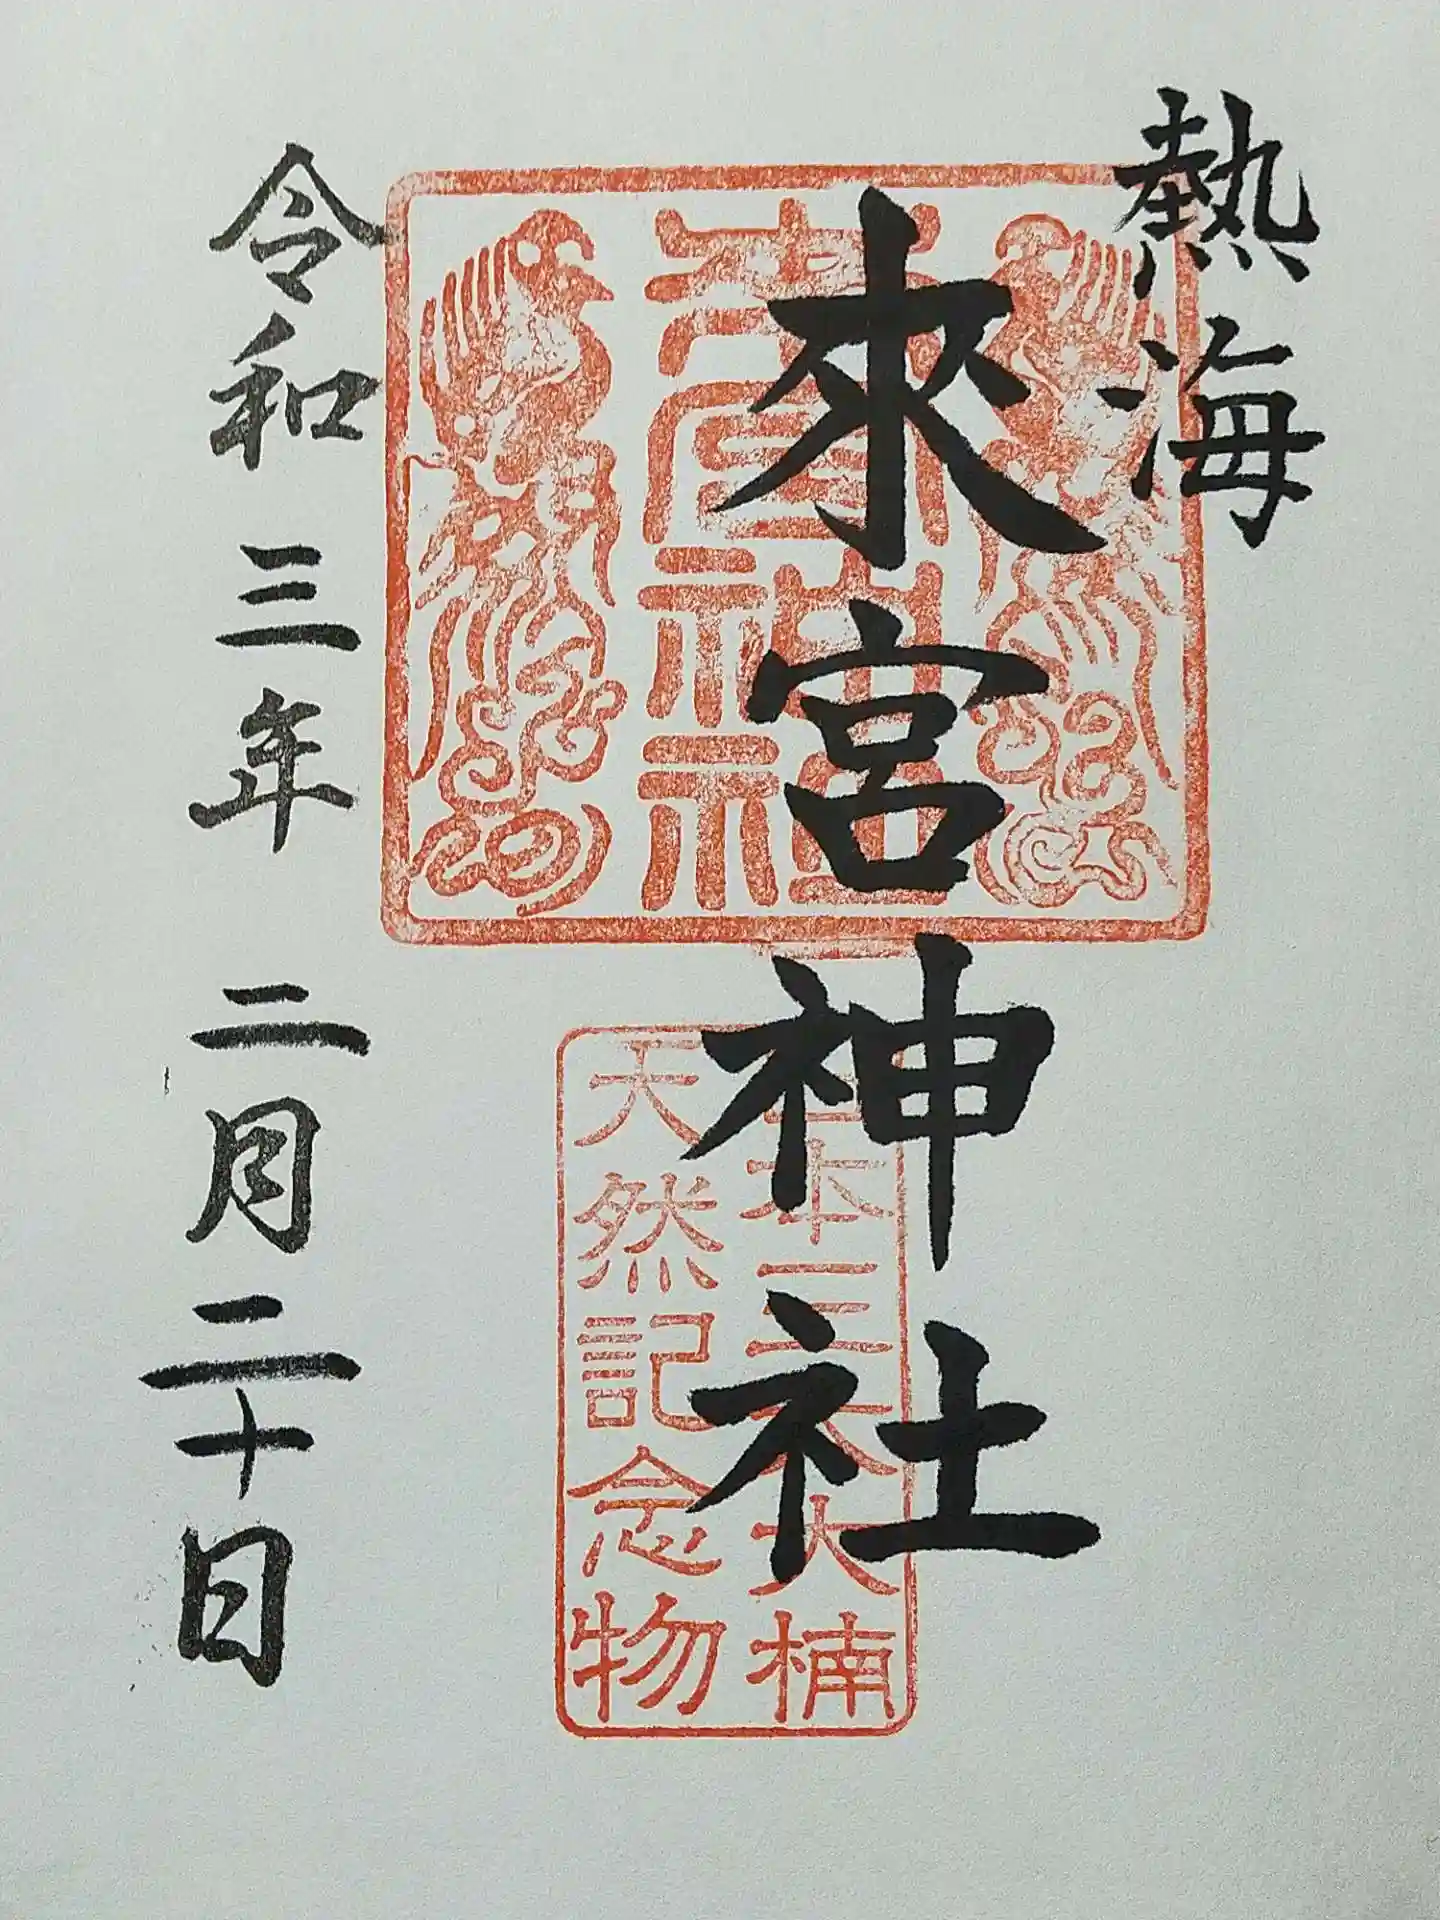 熱海
來宮神社
日本三大大楠
天然記念物
令和三年二月二十日